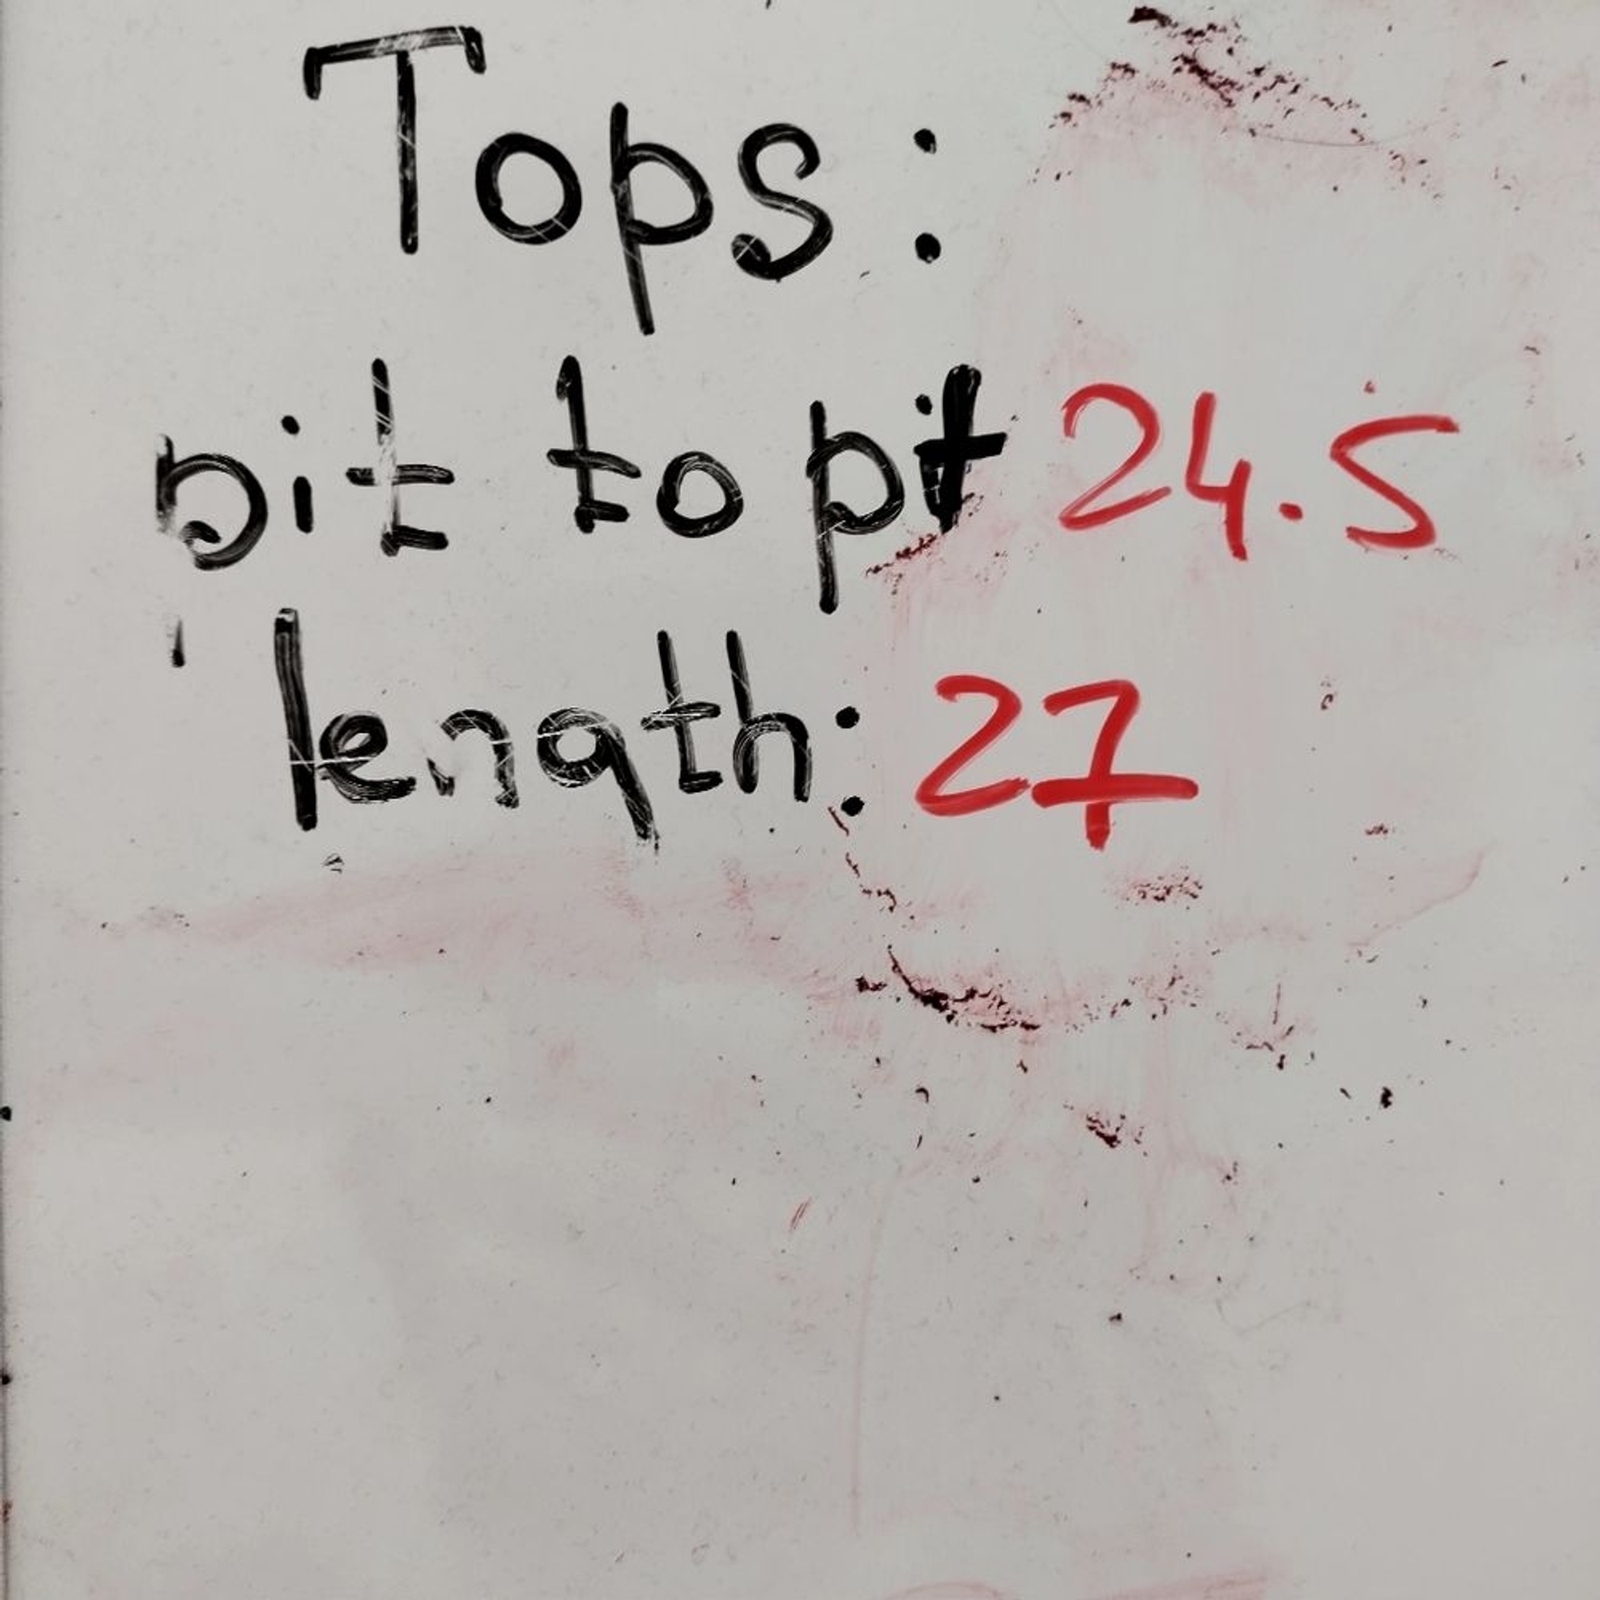 Tops:
pit to pit 24.5
length: 27